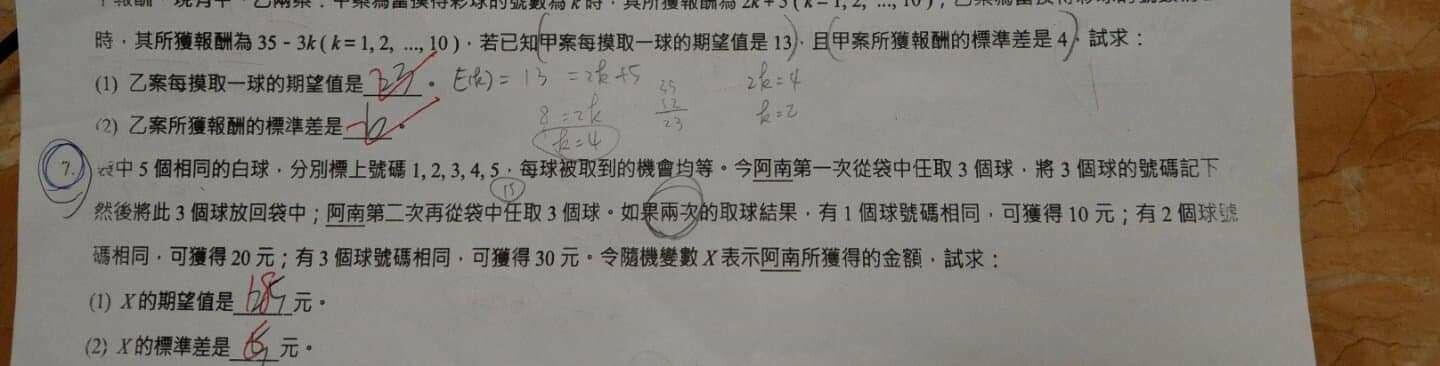 時，其所獲報酬為 35 - 3k ( k = 1, 2, ..., 10 )，若已知甲案每摸取一球的期望值是 13，且甲案所獲報酬的標準差是 4，試求：
(1) 乙案每摸取一球的期望值是 23 。 E(k) = 13 = 2k+5 35 2k=4
(2) 乙案所獲報酬的標準差是 6 。 8 = 2k 12 k=2
k=4 23
7. 袋中 5 個相同的白球，分別標上號碼 1, 2, 3, 4, 5，每球被取到的機會均等。今阿南第一次從袋中任取 3 個球，將 3 個球的號碼記下
15
然後將此 3 個球放回袋中；阿南第二次再從袋中任取 3 個球。如果兩次的取球結果，有 1 個球號碼相同，可獲得 10 元；有 2 個球號
碼相同，可獲得 20 元；有 3 個球號碼相同，可獲得 30 元。令隨機變數 X 表示阿南所獲得的金額，試求：
(1) X 的期望值是 元。
(2) X 的標準差是 元。